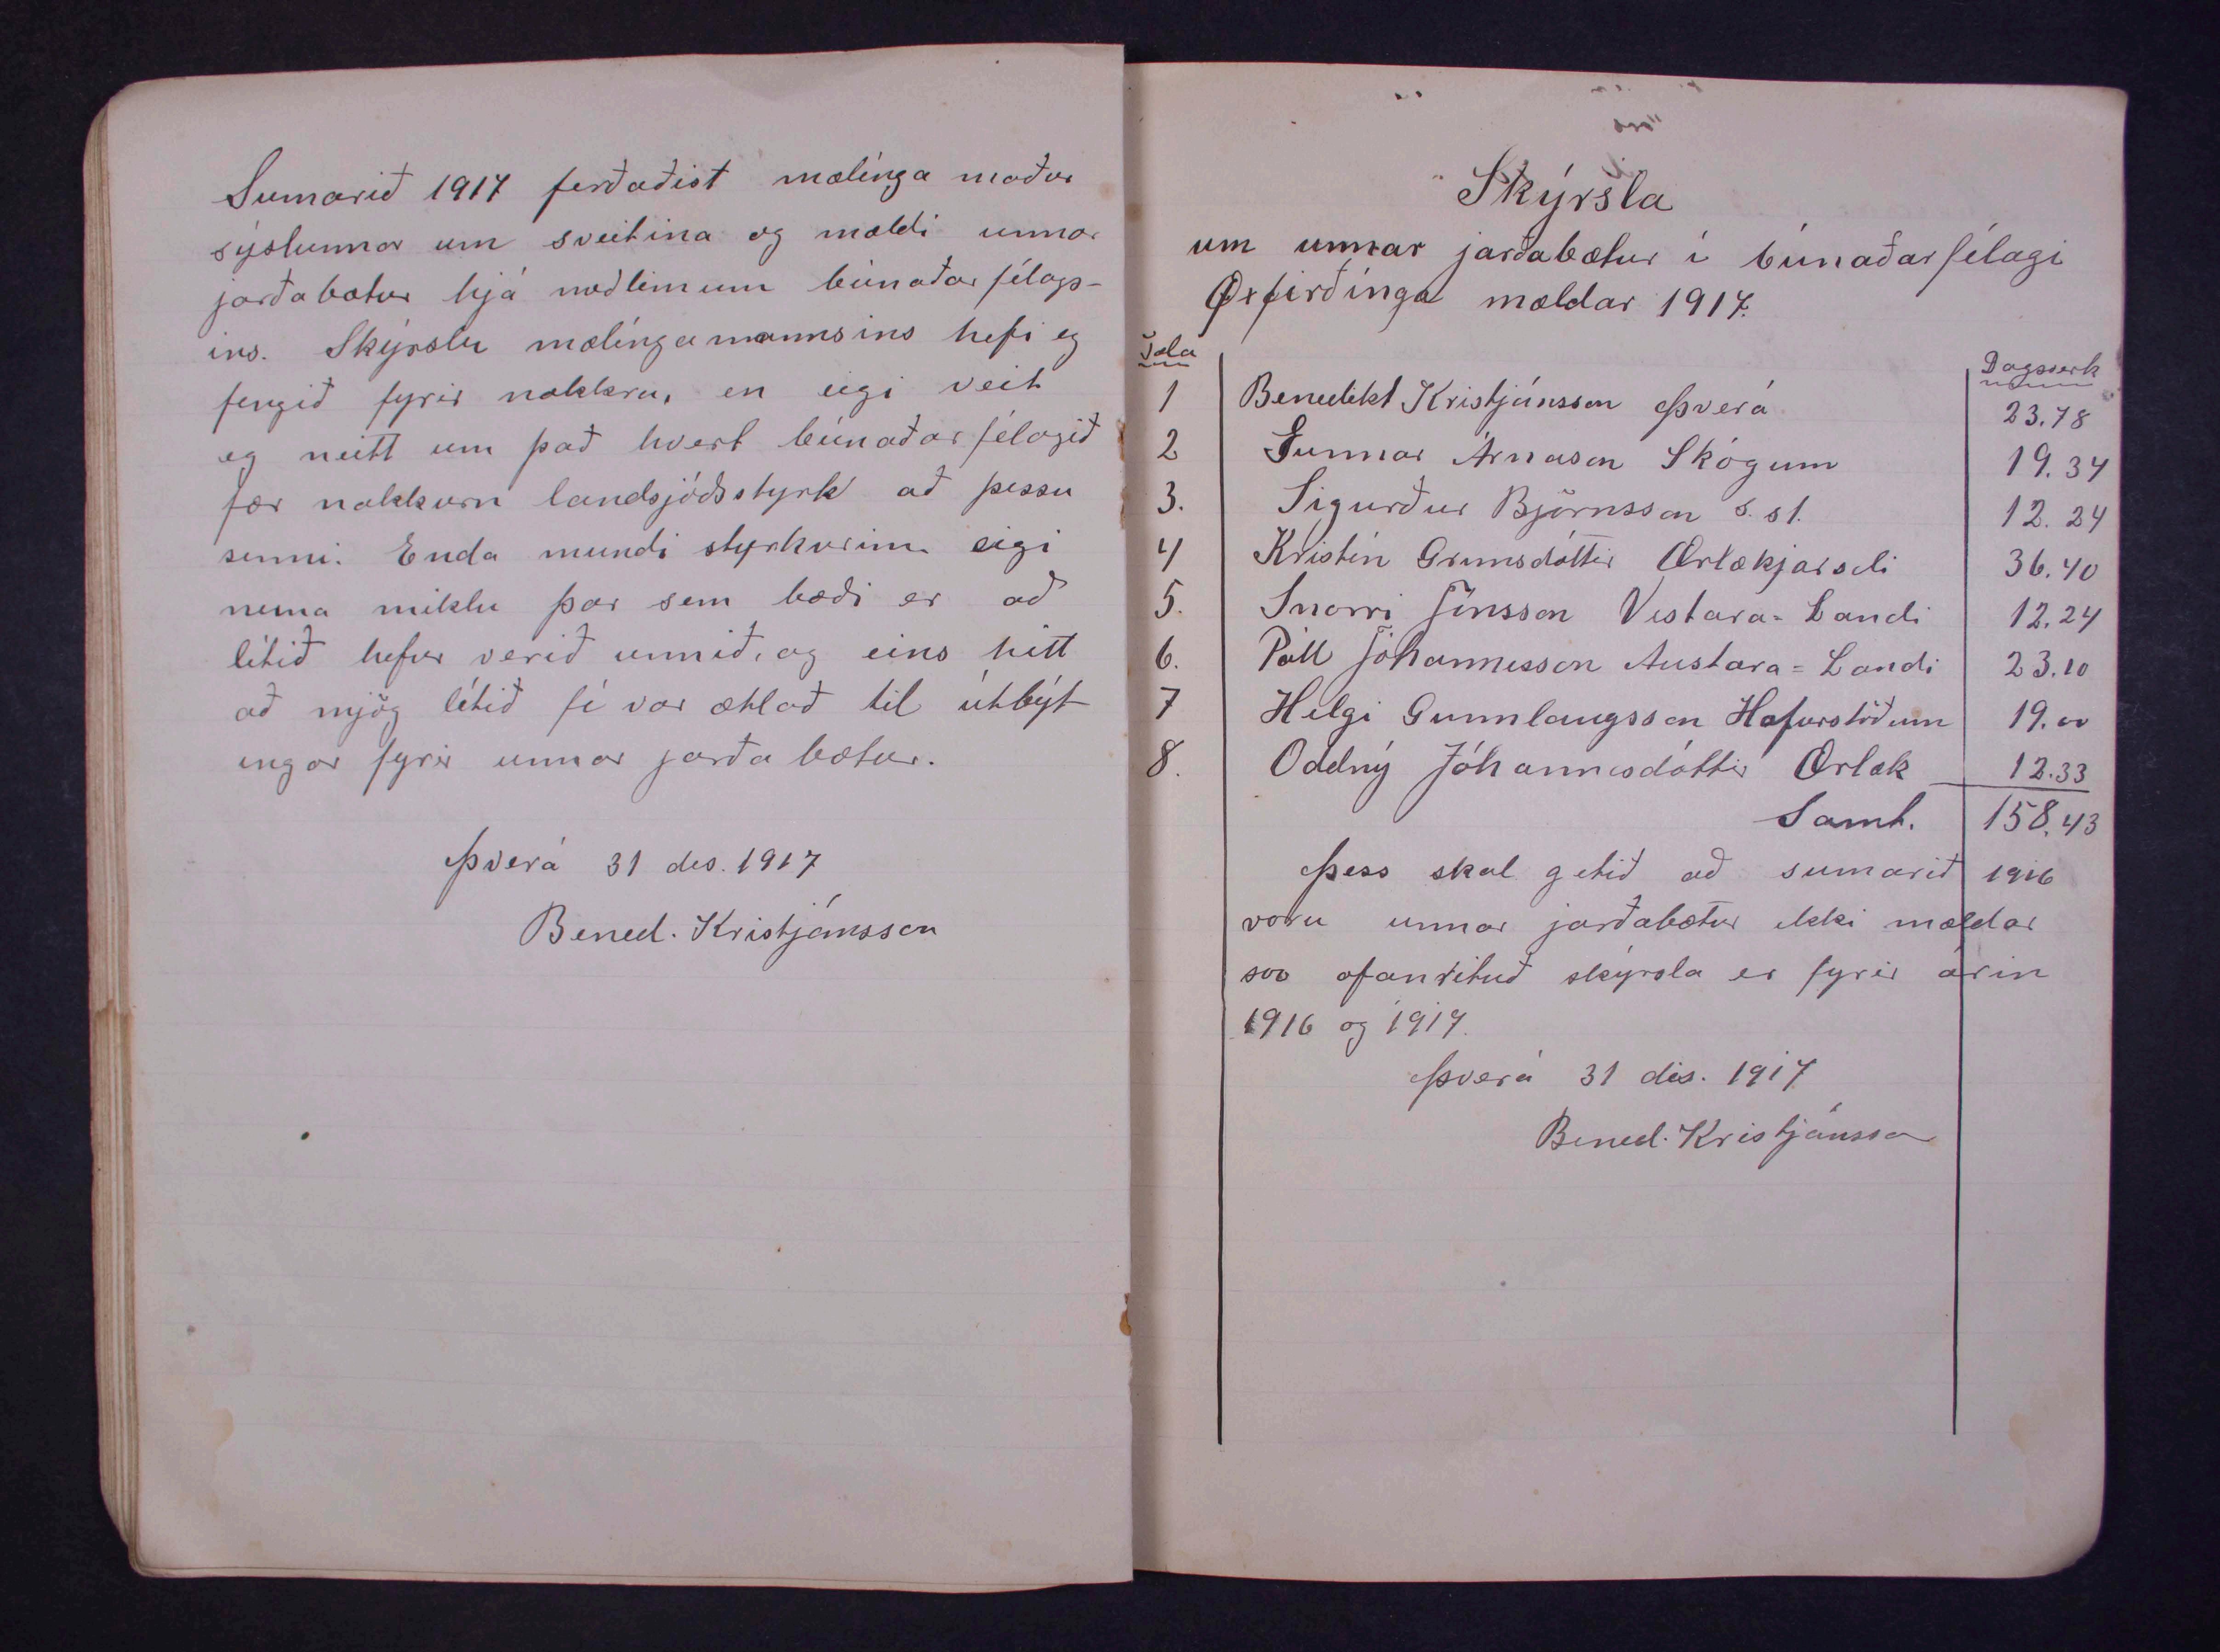 Sumarið 1917 ferðaðist mælínga maður
sýslunnar um sveitina og mældi unnar
jarðabætur hjá meðlimum búnaðar félags-
ins. Skýrslu mælíngamannsins hefi eg
fengið fyrir nokkru, en eigi veit
eg neitt um það hvert búnaðarfélagið
fær nokkurn landsjóðsstyrk að þessu
sinni. Enda mundi styrkurinn eigi
nema miklu þar sem bæði er að
lítið hefur verið unnið, og eins hitt
að mjög lítið fé var ætlað til útbýt
ingar fyrir unnar jarða bætur.
Þverá 31 des. 1917
Bened. Kristjánsson
Skýrsla
um unnar jarðabætur í búnaðarfélagi
Øxfirðínga mældar 1917.
Tala Dagsverk
1 Benedikt Kristjánsson Þverá 23.78
2 Gunnar Árnason Skógum 19.34
3. Sigurður Björnsson s. st. 12.24
4 Kristín Grímsdóttir Ærlækjarseli 36.40
5. Snorri Jónsson Vestara=Landi 12.24
6. Páll Jóhannesson Austara=Landi 23.10
7 Helgi Gunnlaugsson Hafurstöðum 19.00
8. Oddný Jóhannesdóttir Ærlæk 12.33
Samt. 158.43
Þess skal getið að sumarið 1916
voru unnar jarðabætur ekki mældar
svo ofanrituð skýrsla er fyrir árin
1916 og 1917.
Þverá 31 des. 1917
Bened. Kristjánsson